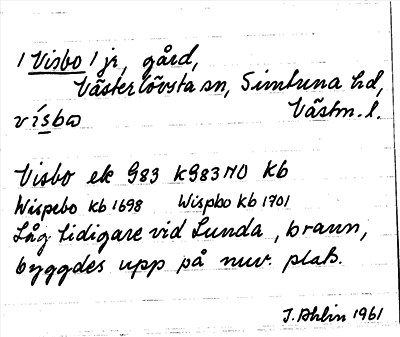 / Visbo / jr, gård,
Västerlövsta sn, Simtuna hd,
vísbω Västm. l.
Visbo ek G83 kG83NO Kb
Wispebo Kb 1698 Wispbo Kb 1701
Låg tidigare vid Lunda, brann,
byggdes upp på nuv. plats.
J. Ahlin 1961